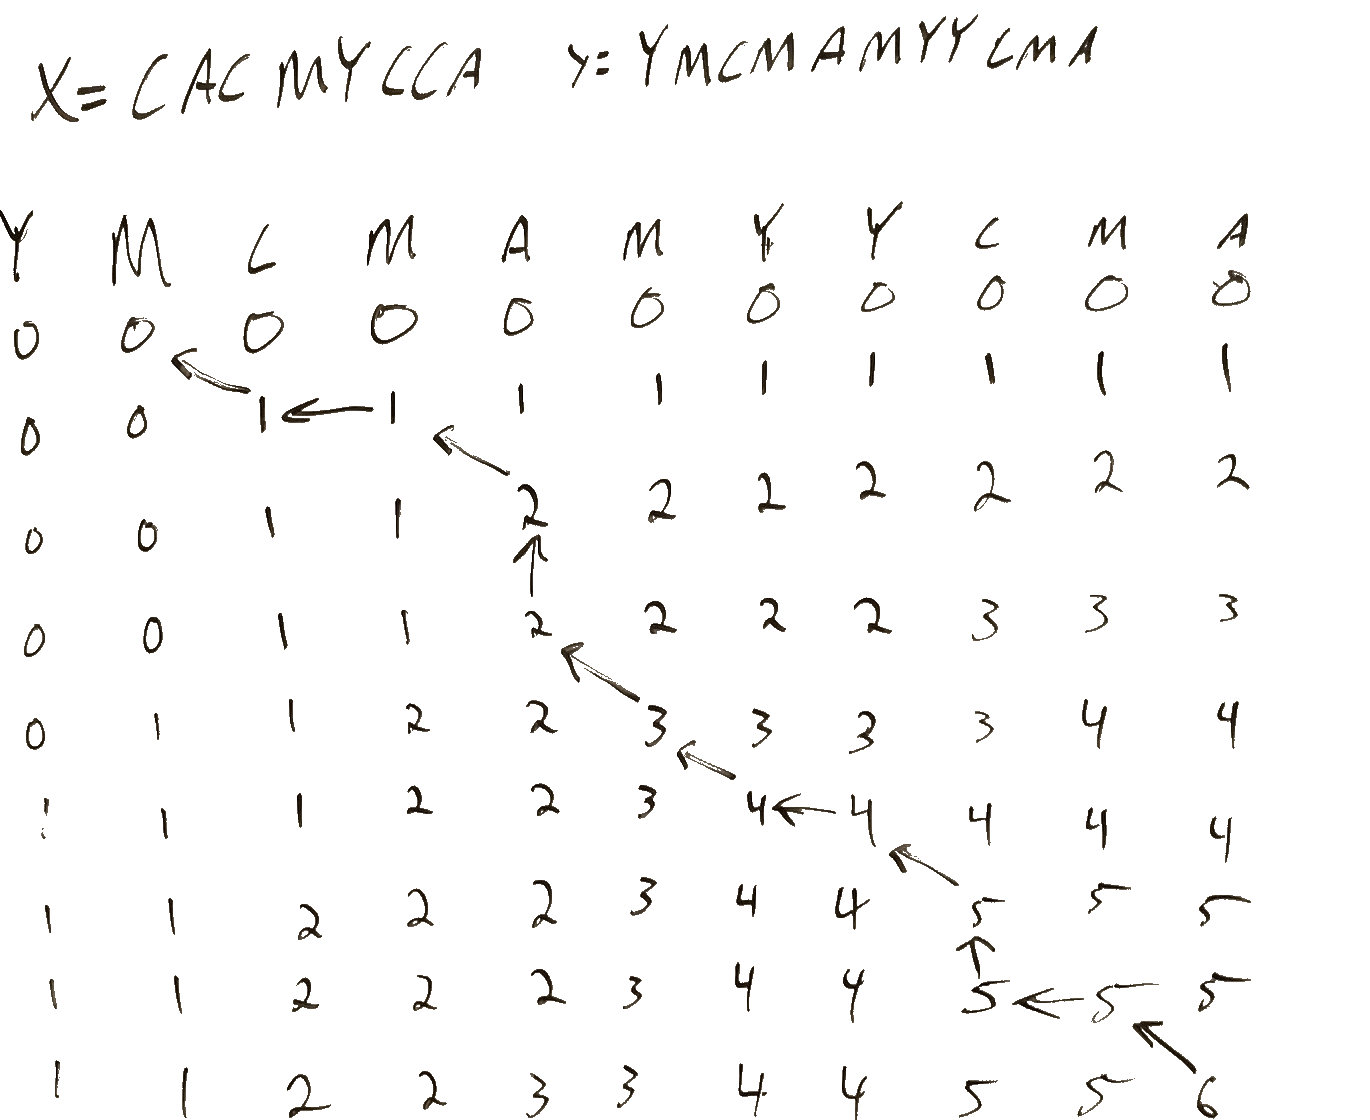 X= CACMYCCA Y= YMCMAMYYCMA
Y M C M A M Y Y C M A
0 0 0 0 0 0 0 0 0 0 0
0 0 1 ← 1 1 1 1 1 1 1 1
0 0 1 1 2 2 2 2 2 2 2
0 0 1 1 2 2 2 2 3 3 3
0 1 1 2 2 3 3 3 3 4 4
1 1 1 2 2 3 4 ← 4 4 4 4
1 1 2 2 2 3 4 4 5 5 5
1 1 2 2 2 3 4 4 5 ← 5 5
1 1 2 2 3 3 4 4 5 5 6